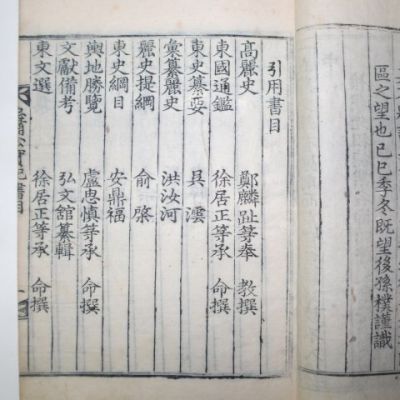 區之望也已巳季冬既望後孫樸謹識
引用書目
高麗史 鄭麟趾等奉 教撰
東國通鑑 徐居正等承 命撰
東史纂要 吳澐
彙纂麗史 洪汝河
麗史提綱 俞棨
東史綱目 安鼎福
輿地勝覽 盧思慎等承 命撰
文獻備考 弘文館纂輯
東文選 徐居正等承 命撰